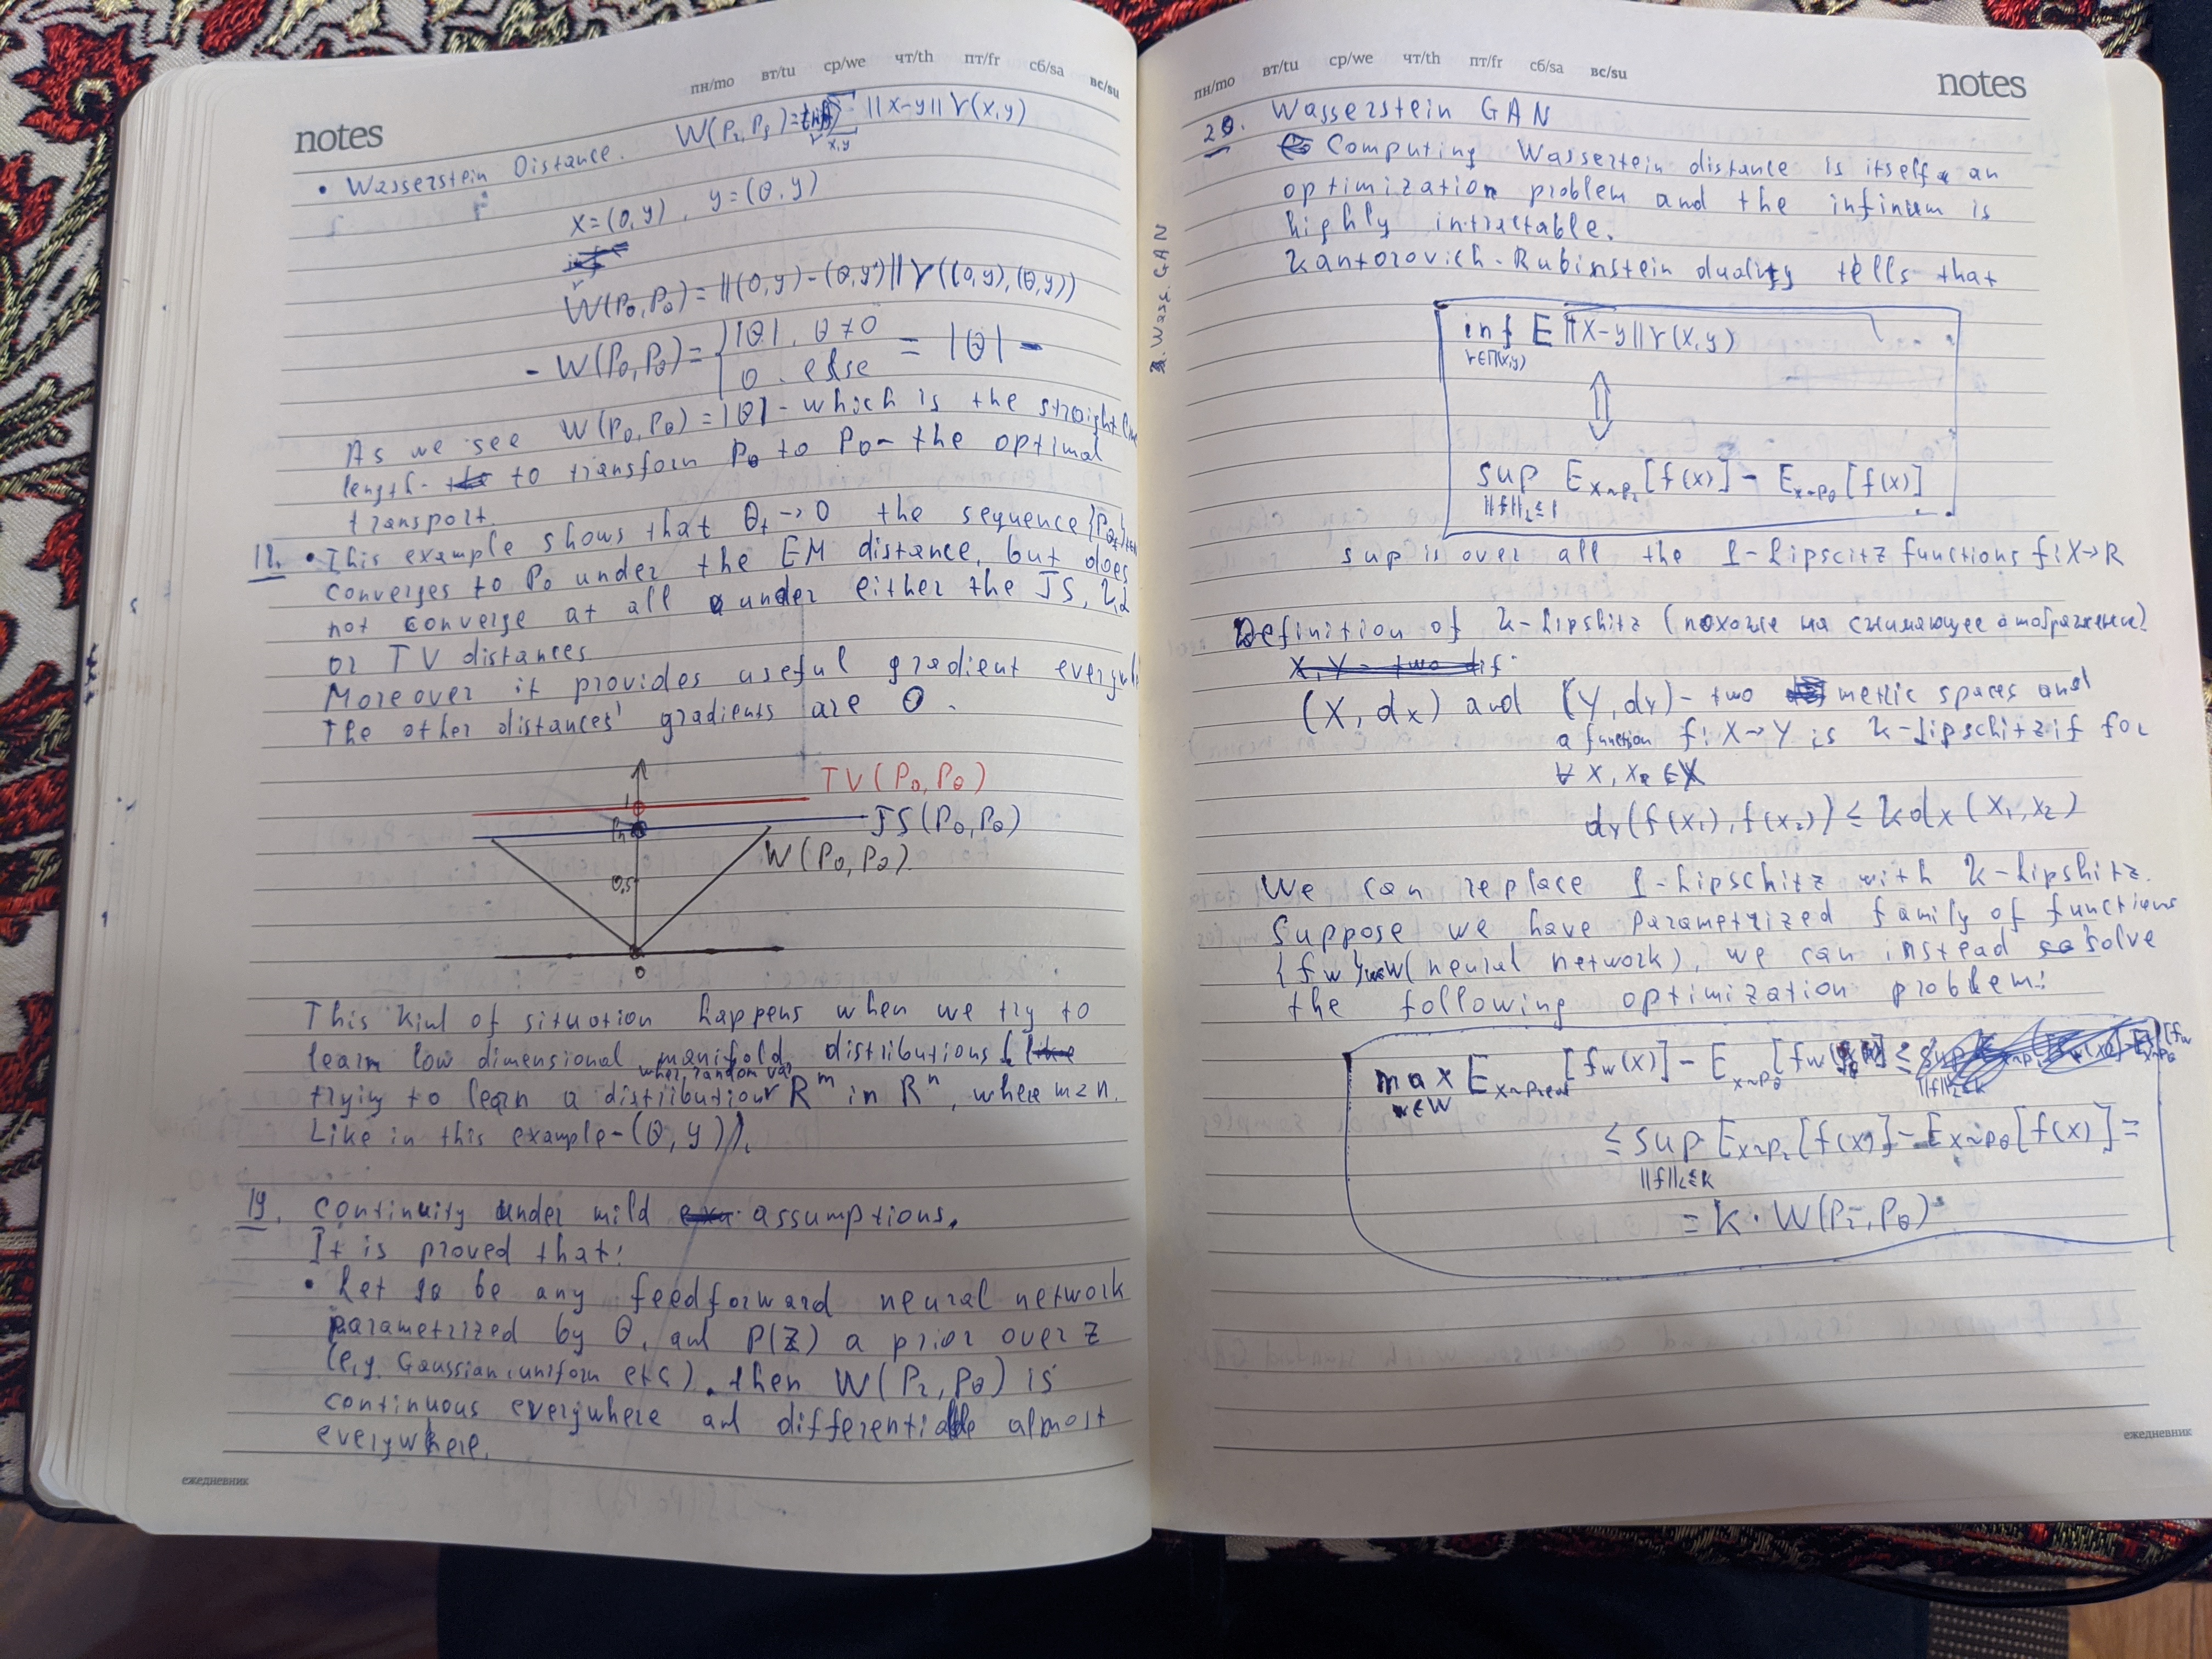 notes
пн/mo вт/tu ср/we чт/th пт/fr сб/sa вс/su
• Wasserstein Distance. W(Pr, Pg) = inf Σ ||x-y|| γ(x,y)
γ x,y
x = (0, y), y = (θ, y)
W(P0, Pθ) = ||(0,y) - (θ,y')|| γ((0,y),(θ,y))
- W(P0, Pθ) = { |θ|, θ ≠ 0
0. else = |θ| -
As we see W(P0, Pθ) = |θ| - which is the straight line
length to transform Pθ to P0 - the optimal
transport.
18. • This example shows that θt → 0 the sequence {Pθt}t∈N
converges to P0 under the EM distance, but does
not converge at all under either the JS, KL
or TV distances
Moreover it provides useful gradient everywh
The other distances' gradients are 0.
TV(P0, Pθ)
1
JS(P0, Pθ)
W(P0, Pθ).
0,5
0
This kind of situation happens when we try to
learn low dimensional manifold distributions (like
when random var
trying to learn a distribution R^m in R^n, where m<n.
Like in this example - (θ, y)).
19. Continuity under mild assumptions.
It is proved that:
• Let gθ be any feedforward neural network
parametrized by θ, and P(Z) a prior over Z
(e,g. Gaussian, uniform etc). then W(Pr, Pθ) is
continuous everywhere and differentiable almost
everywhere.
ежедневник
пн/mo вт/tu ср/we чт/th пт/fr сб/sa вс/su
notes
2. Wass. GAN
20. Wasserstein GAN
Computing Wassertein distance is itself an
optimization problem and the infinum is
highly intractable.
Kantorovich-Rubinstein duality tells that
inf E ||x-y|| γ(x,y)
γ∈Π(x,y)
⇕
sup E x~Pr [f(x)] - E x~Pθ [f(x)]
||f||L ≤ 1
sup is over all the 1-Lipscitz functions f: X→R
Definition of K-Lipshitz (похоже на сжимающее отображение)
X, Y - two dif
(X, dx) and (Y, dY) - two metric spaces and
a function f: X→Y is K-Lipschitz if for
∀ x, x2 ∈ X
dY(f(x1), f(x2)) ≤ K dx (x1, x2)
We can replace 1-Lipschitz with K-Lipshitz.
Suppose we have parametrized family of functions
{fw}w∈W (neural network), we can instead solve
the following optimization problem:
max E x~Preal [fw(x)] - E x~Pθ [fw(x)] ≤
w∈W
≤ sup E x~Pr [f(x)] - E x~Pθ [f(x)] =
||f||L ≤ K
= K · W(Pr, Pθ)
ежедневник